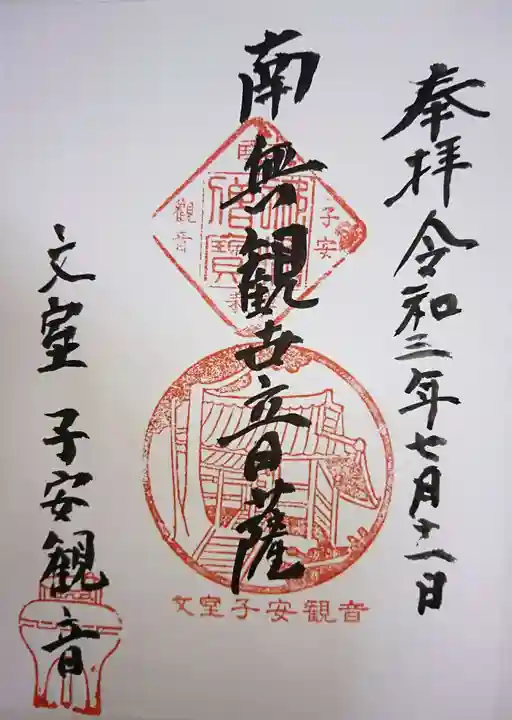 奉拝 令和三年七月十一日
南無観世音菩薩
文室 子安観音
子安
觀音
文室子安観音